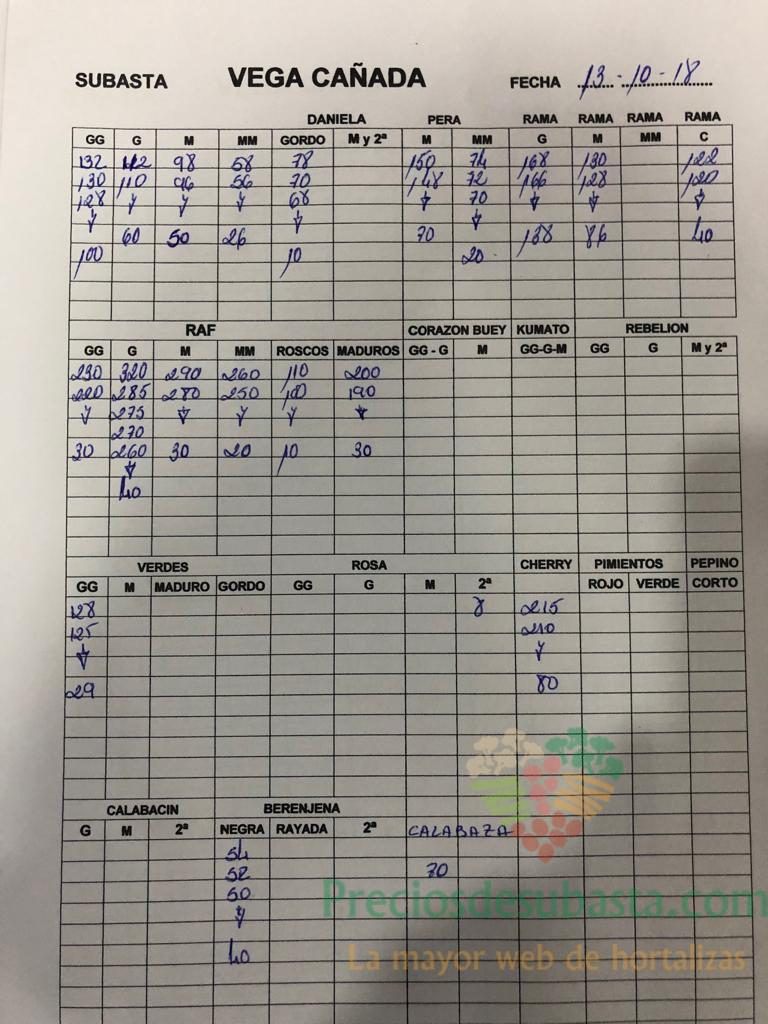 SUBASTA VEGA CAÑADA FECHA 13-10-18
DANIELA PERA RAMA RAMA RAMA RAMA
GG G M MM GORDO M y 2ª M MM G M MM C
132 112 98 58 78 150 74 168 130 122
130 110 96 56 70 148 72 166 128 120
128 68 70
60 50 26 70 138 86 40
100 10 20
RAF CORAZON BUEY KUMATO REBELION
GG G M MM ROSCOS MADUROS GG - G M GG-G-M GG G M y 2ª
230 320 290 260 110 200
220 285 280 250 100 190
275
270
30 260 30 20 10 30
40
VERDES ROSA CHERRY PIMIENTOS PEPINO
GG M MADURO GORDO GG G M 2ª ROJO VERDE CORTO
128 8 215
125 210
29 80
CALABACIN BERENJENA
G M 2ª NEGRA RAYADA 2ª CALABAZA
54
52 70
50
40
Preciosdesubasta.com
La mayor web de hortalizas